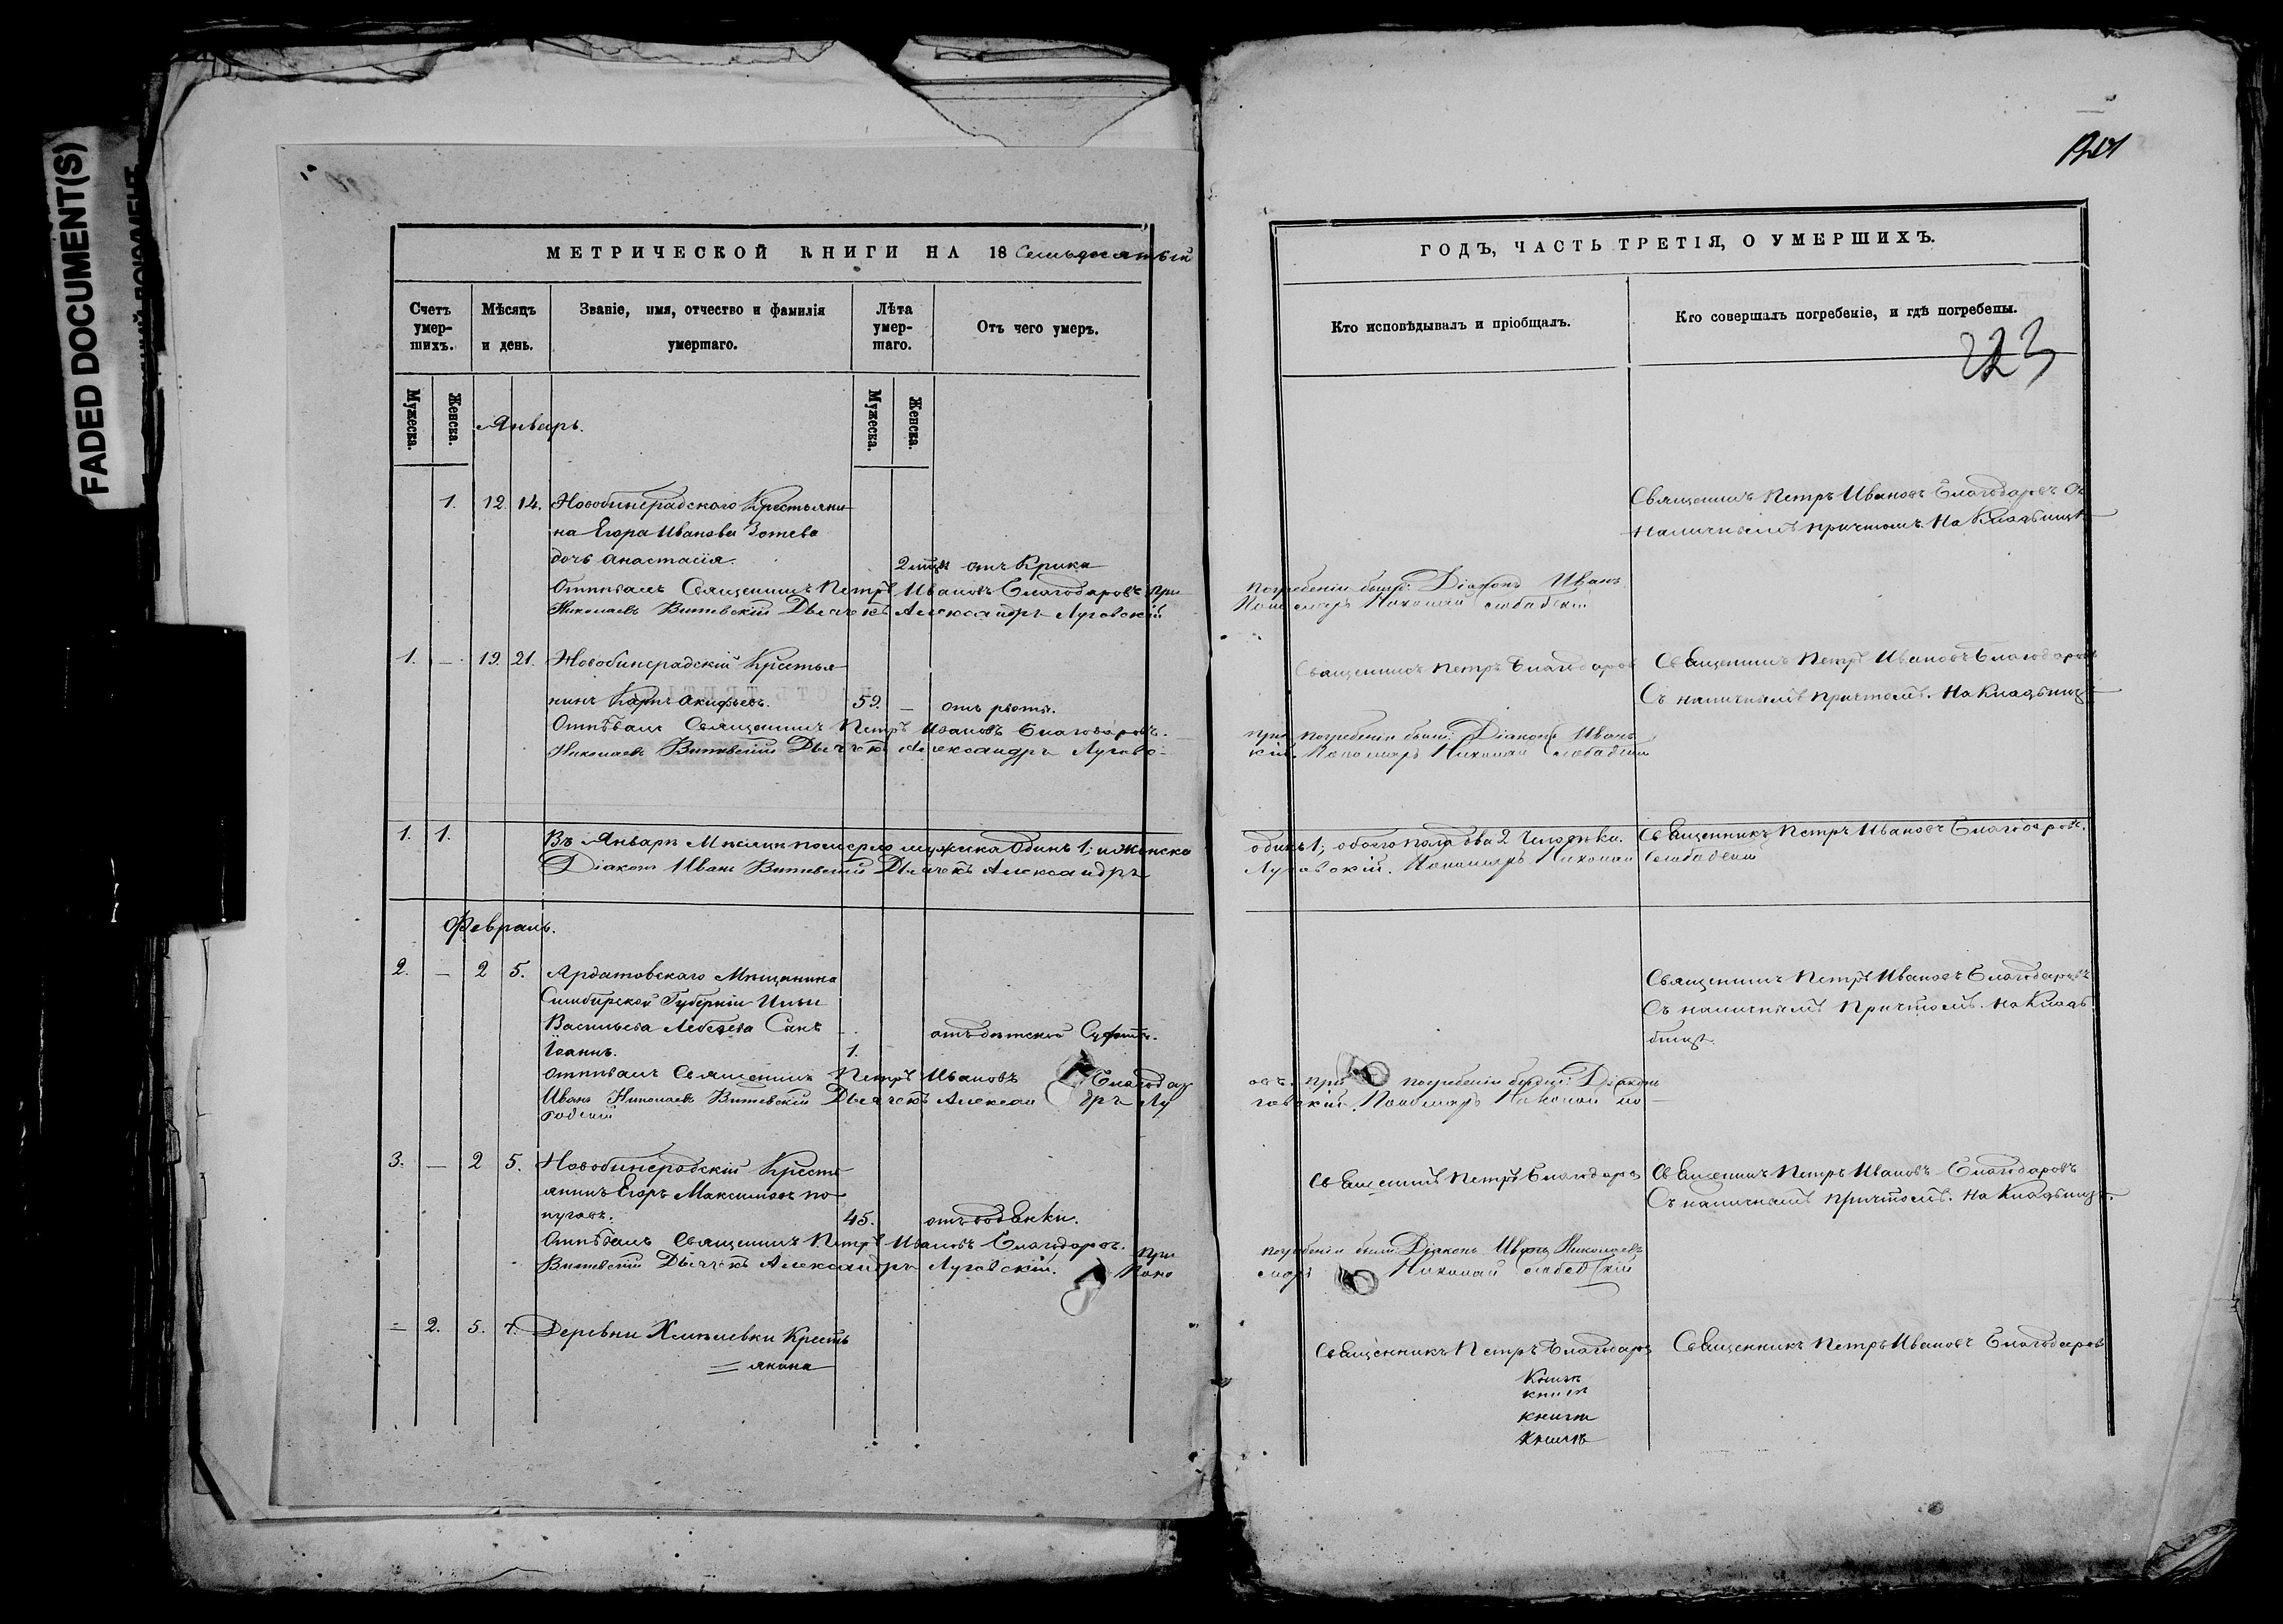 FADED DOCUMENT(S)
МЕТРИЧЕСКОЙ КНИГИ НА 18 Семьдесятый
Счетъ умер- шихъ.
Мѣсяцъ и день.
Званіе, имя, отчество и фамилія умершаго.
Лѣта умер- шаго.
Отъ чего умеръ.
Мужеска.
Женска.
Мужеска.
Женска.
Январь.
1. 12. 14. Новобинарадскаго Крестьяни
на Егора Иванова Зотева
дочь Анастасія.
2 мцы отъ Крика
Отпѣвалъ Священникъ Петръ Ивановъ Благодаровъ при
Николаевъ Витевскій Дьячекъ Александръ Луговскій
1. — 19. 21. Новобинарадскій Крестья
нинъ Карпъ Акифьевъ. 59. — отъ рвоты.
Отпѣвалъ Священникъ Петръ Ивановъ Благодаровъ.
Николаевъ Витевскій Дьячекъ Александръ Луговс-
1. 1. Въ Январѣ Мѣсяцѣ померло мужска Одинъ 1; и женска
Діаконъ Иванъ Витевскій Дьячекъ Александръ
Февраль.
2. — 2 5. Ардатовскаго Мѣщанина
Симбирской Губерніи Ильи
Васильева Лебедева Сынъ
Іоаннъ. 1. отъ дѣтской
Отпѣвалъ Священникъ Петръ Ивановъ Благодар
Иванъ Николаевъ Витевскій Дьячекъ Алексан дръ Лу
3. — 2 5. Новобинарадскій Кресть
янинъ Егоръ Максимовъ По
пуговъ. 45. отъ водянки.
Отпѣвалъ Священникъ Петръ Ивановъ Благодаровъ. при
Витевскій Дьячекъ Александръ Луговскій. Поно
= 2. 5. 7. Деревни Хмѣлевки Кресть
= янина
ГОДЪ, ЧАСТЬ ТРЕТІЯ, О УМЕРШИХЪ.
Кто исповѣдывалъ и пріобщалъ.
Кто совершалъ погребеніе, и гдѣ погребены.
223
Священникъ Петръ Ивановъ Благодаровъ Съ
наличнымъ причтомъ. На Кладбищѣ
погребеніи были: Діаконъ Иванъ
Пономарь Николай
Священникъ Петръ Благодаровъ
Священникъ Петръ Ивановъ Благодаровъ
Съ наличнымъ причтомъ. На Кладбищѣ
при погребеніи были: Діаконъ Иванъ
кій. Пономарь Николай
одинъ 1; обоего пола два 2 Человѣка. Священникъ Петръ Ивановъ Благодаровъ.
Луговскій. Пономарь Николай
Священникъ Петръ Ивановъ Благодаровъ
Съ наличнымъ Причтомъ. На Клад
бищѣ.
овъ. при погребеніи были: Діаконъ
говскій. Пономарь Николай
Священникъ Петръ Благодаровъ
Священникъ Петръ Ивановъ Благодаровъ
Съ наличнымъ причтомъ. На Кладбищѣ.
погребеніи были: Діаконъ Иванъ Николаевъ
марь Николай
Священникъ Петръ Благодаровъ
Священникъ Петръ Ивановъ Благодаровъ
Книгѣ
книгѣ
книги
Книгѣ